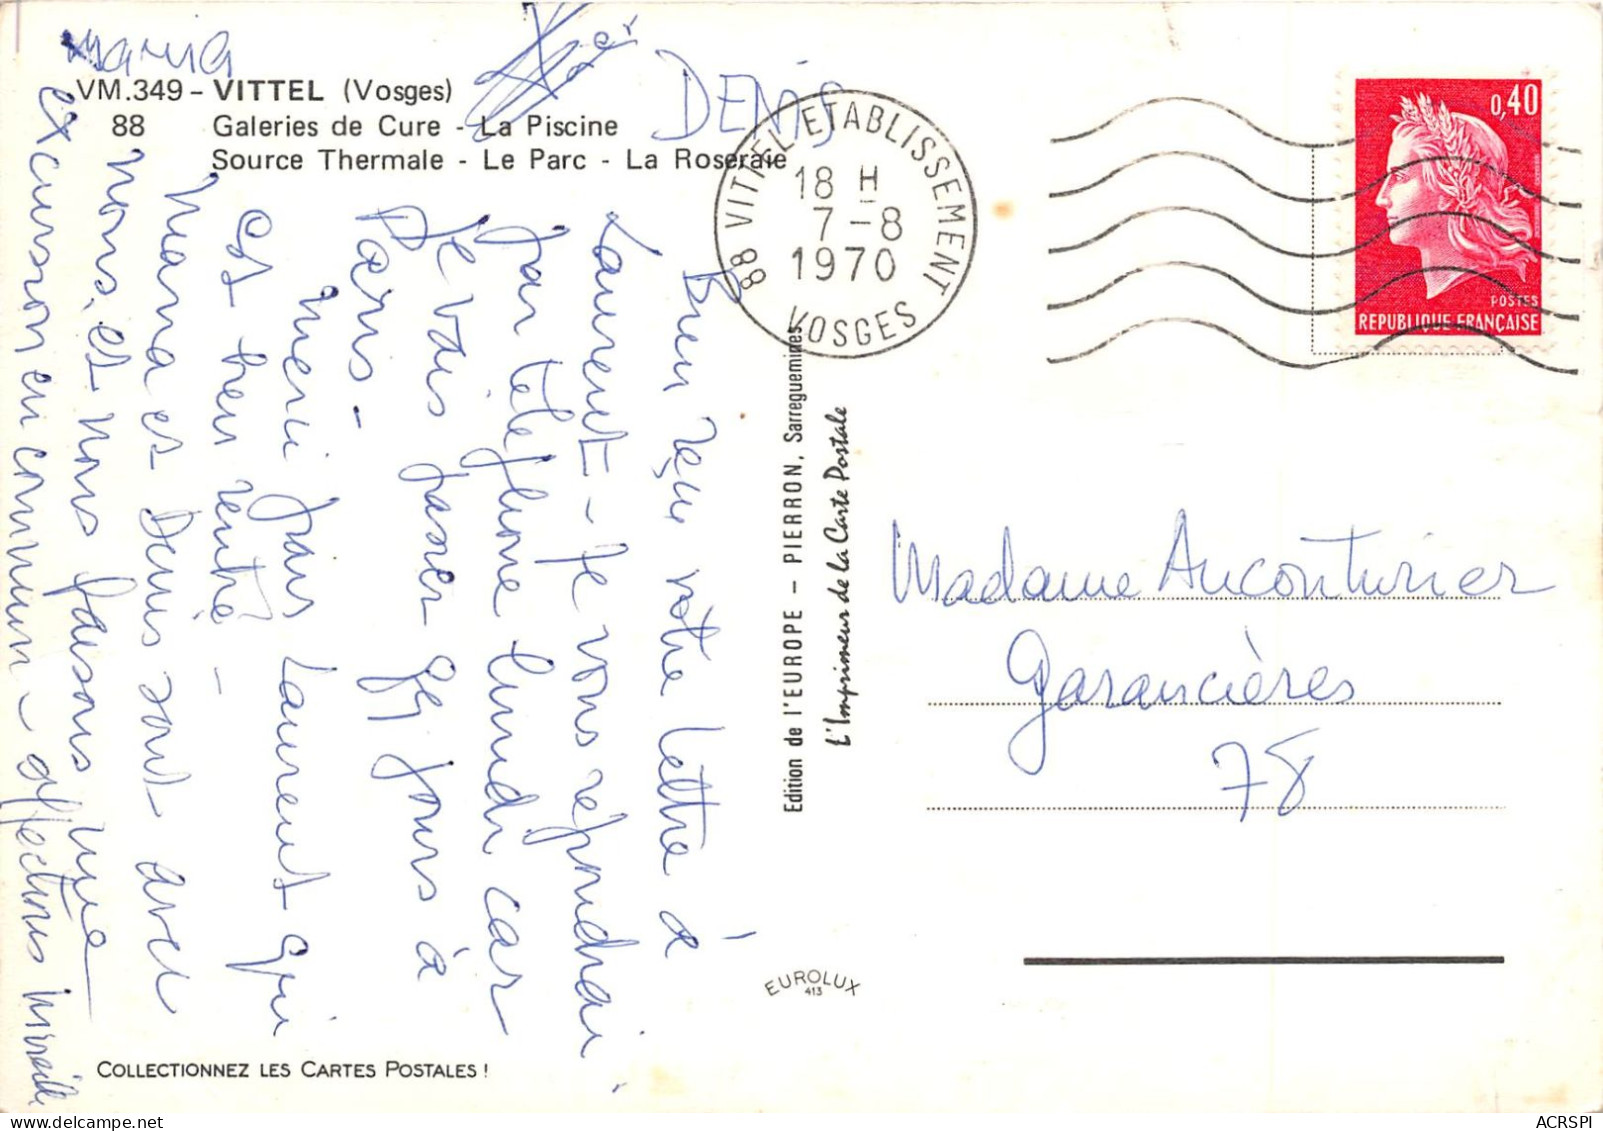 Maria
DENIS
VM.349 - VITTEL (Vosges)
88 Galeries de Cure - La Piscine
Source Thermale - Le Parc - La Roseraie
88 VITTEL ETABLISSEMENT
18 H
7-8
1970
VOSGES
0,40
POSTES
REPUBLIQUE FRANÇAISE
Bien reçu votre lettre à
Laurent - Je vous répondrai
par téléphone lundi car
je vais passer jours à
Paris -
Merci pour Laurent qui
est bien rentré -
Maria et Denis sont avec
nous, et nous faisons une
excursion en commun - affections Mireille
Edition de l'EUROPE - PIERRON, Sarreguemines
L'Imprimeur de la Carte Postale
Madame Aucouturier
Garancières
78
EUROLUX
413
COLLECTIONNEZ LES CARTES POSTALES !
ACRSPI